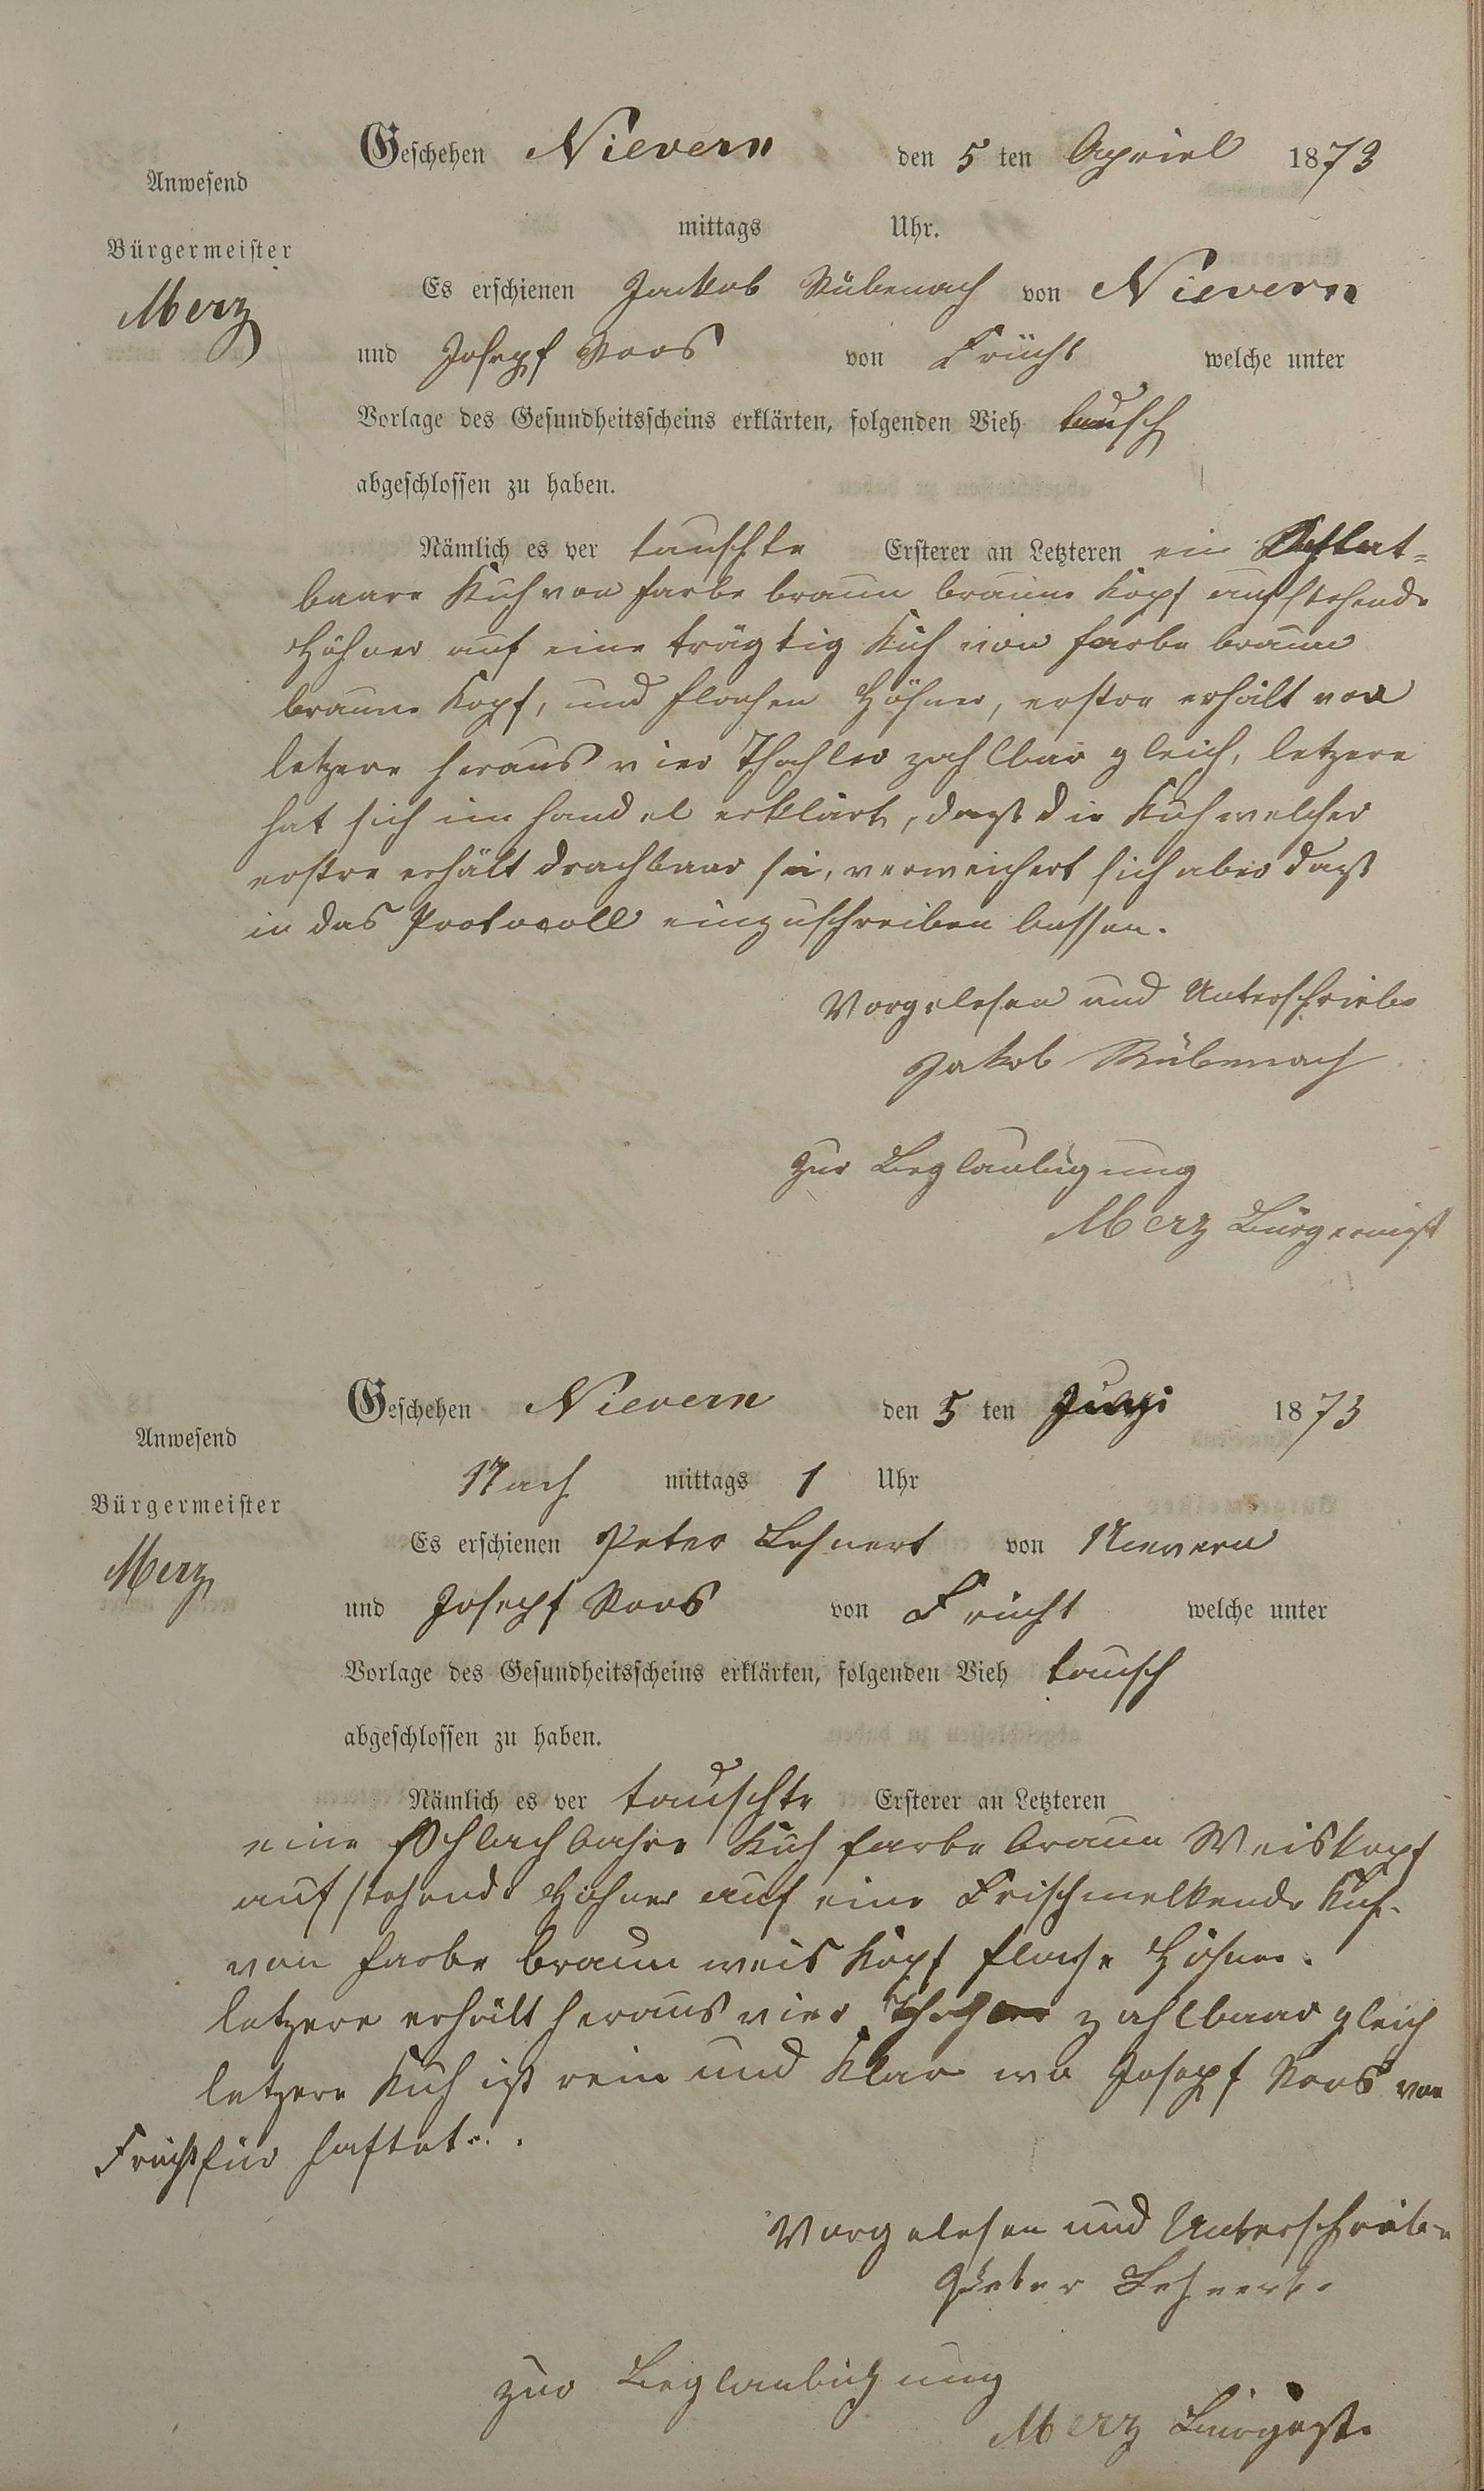 Geschehen Nievern den 5 ten Apriel 1873
Anwesend
mittags Uhr.
Bürgermeister
Merz
Es erschienen Jackob Rübenach von Nievern
und Josepf Roos von Frücht welche unter
Vorlage des Gesundheitsscheins erklärten, folgenden Vieh tausch
abgeschlossen zu haben.
Nämlich es ver tauschte Ersterer an Letzteren ein
baare Kuh von farbe braun braune Kopf aufstehende
Höhner auf eine trägtig Kuh von farbe braun
braune Kopf, und flachen Höhner, erstre erhält von
letzere heraus vier Thahler zahlbar gleich, letzere
hat sich im handel erklärt, daß die Kuh welcher
erstre erhält drachbaar sei, verweichert sich aber daß
in das Protocoll einzuschreiben lassen.
Vorgelesen und Unterschrieben
Jakob Rübenach
Zur Beglaubigung
Merz Bürgermst
Geschehen Nievern den 5 ten 1873
Anwesend
Nach mittags 1 Uhr
Bürgermeister
Merz
Es erschienen Peter Lehnert von Nievern
und Josepf Roos von Frücht welche unter
Vorlage des Gesundheitsscheins erklärten, folgenden Vieh tausch
abgeschlossen zu haben.
Nämlich es ver tauschte Ersterer an Letzteren
eine Schlachbahre Kuh farbe braun Weiskopf
aufstehende Höhner auf eine Frischmelkende Kuh
von farbe braun weis Kopf flache Höhner.
letzere erhält heraus vier Thahler zahlbaar gleich
letzere Kuh ist rein und Klar wo Josepf Roos von
Frücht für haftet.
Vorgelesen und Unterschrieben
Peter Lehnert.
zur Beglaubichung
Merz Bürgerst.